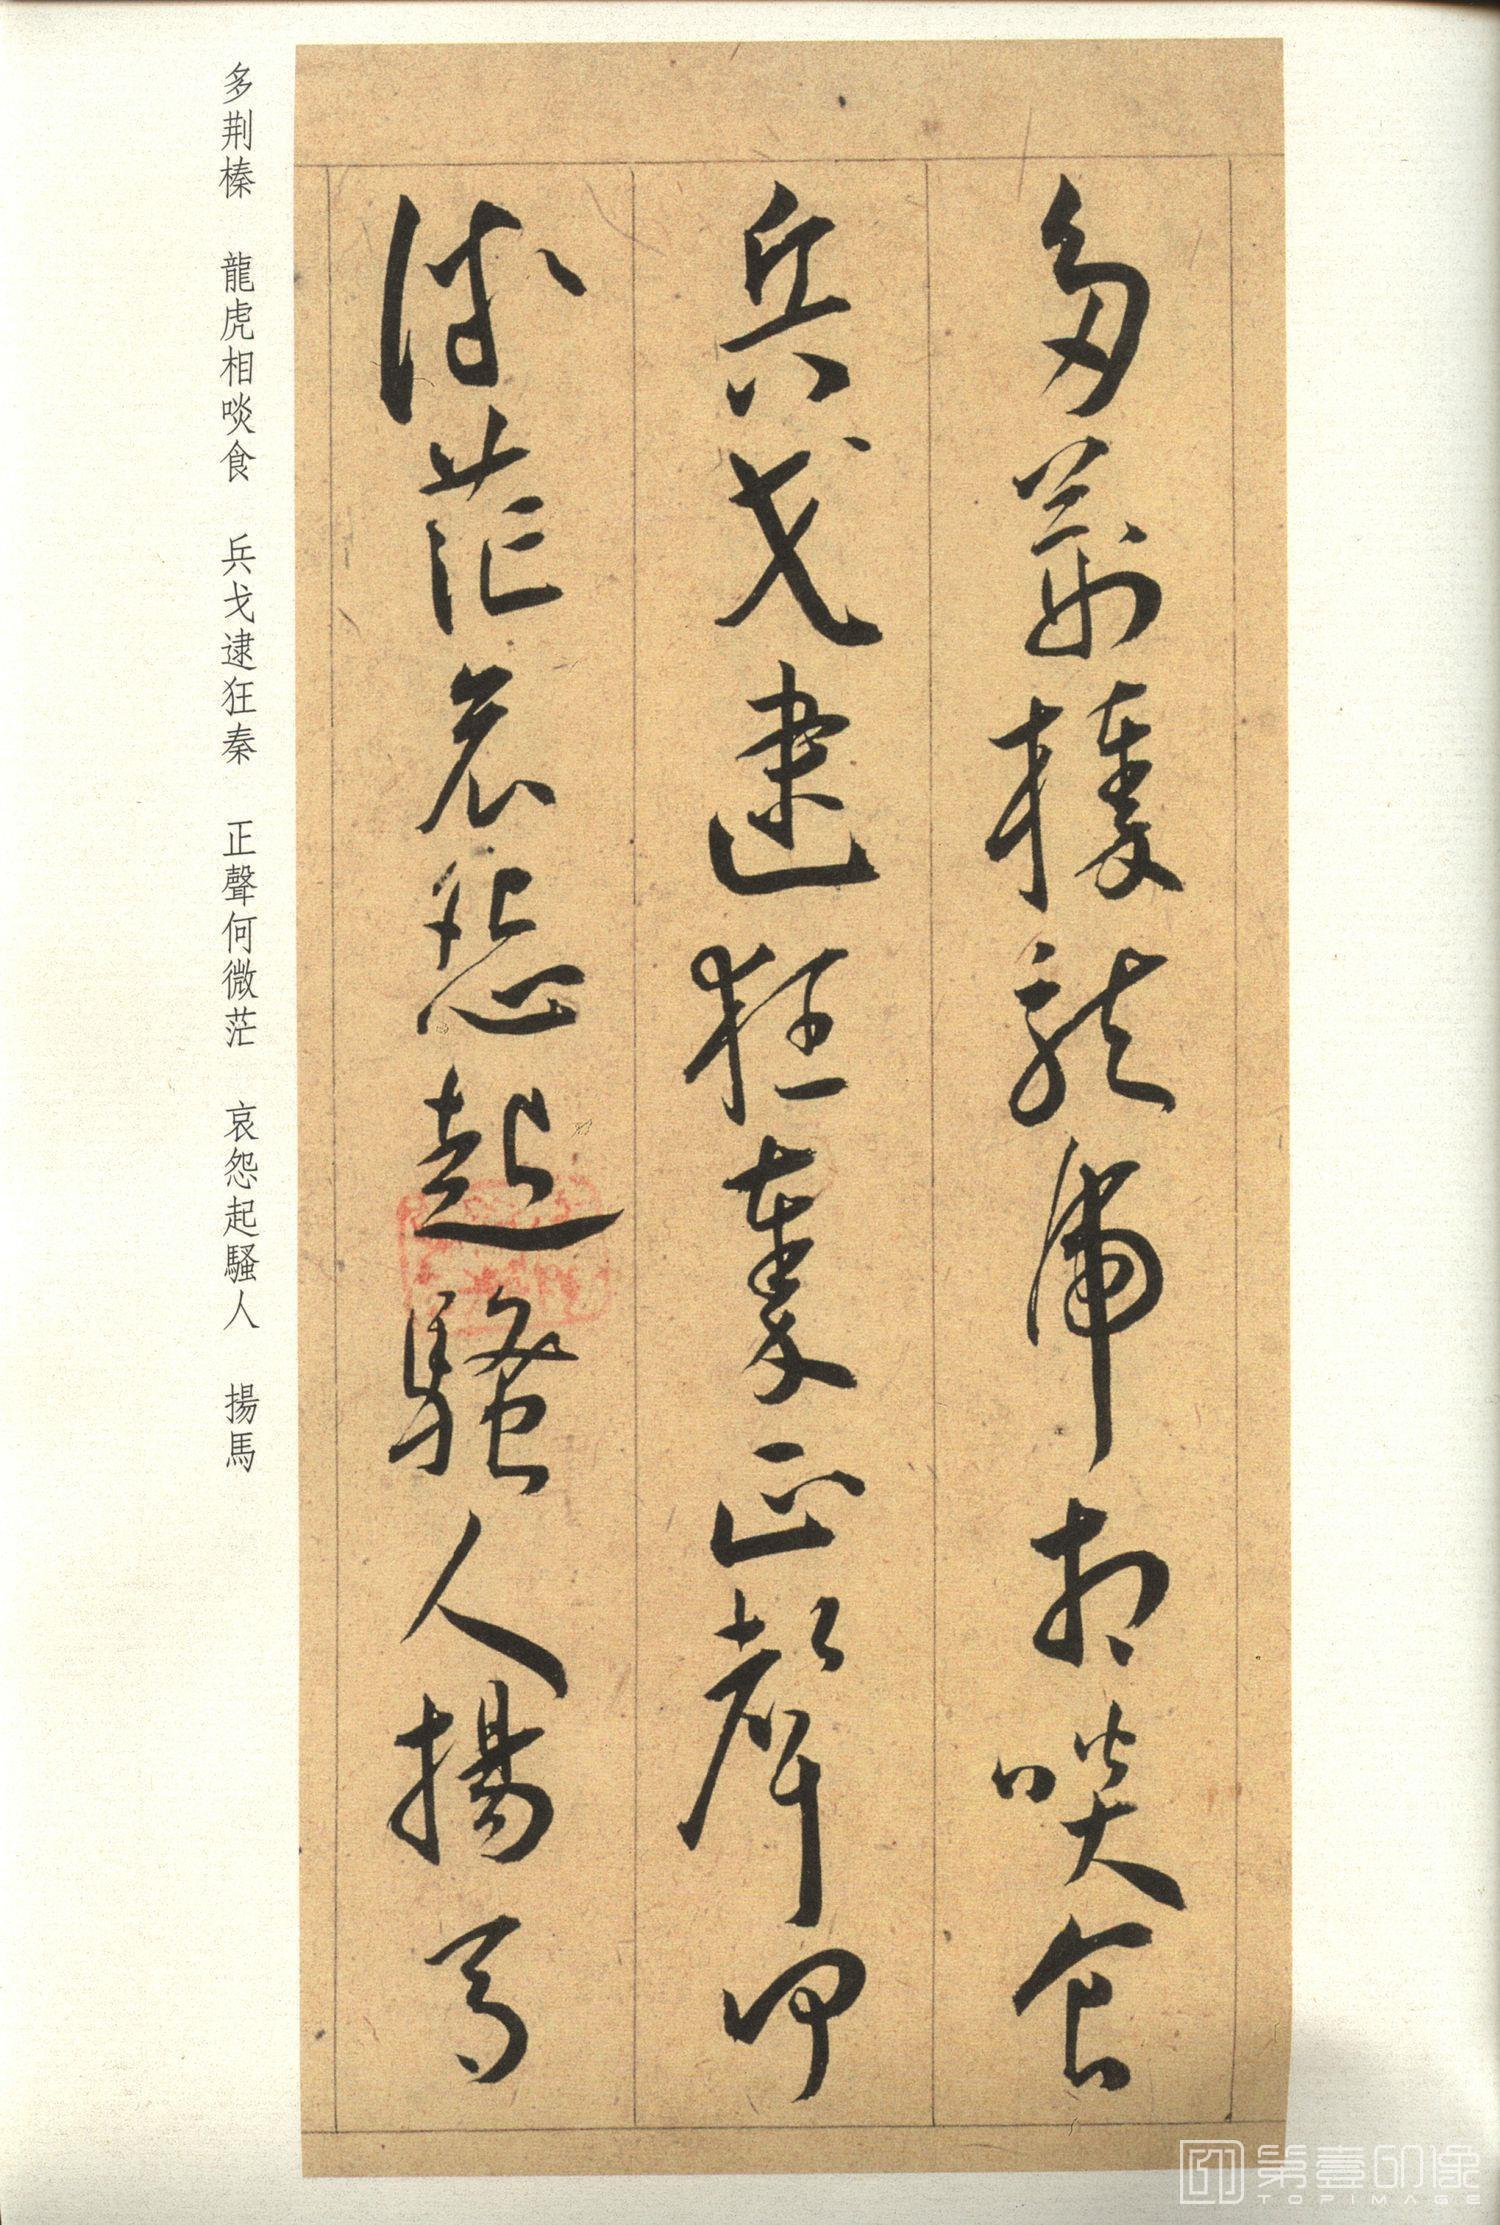 多荆榛龍虎相啖食
兵戈逮狂秦正聲何
微茫哀怨起騷人揚馬
多荆榛 龍虎相啖食 兵戈逮狂秦 正聲何微茫 哀怨起騷人 揚馬
第壹印像
TOPIMAGE